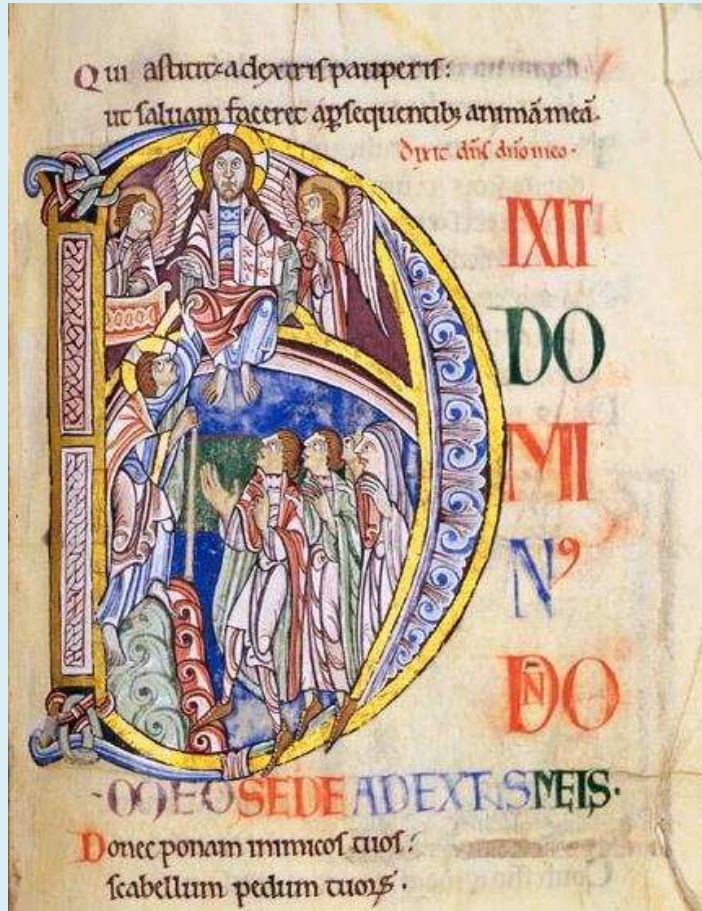 Qui astitit a dextris pauperis:
ut saluam faceret a p̱sequentibꝫ animā meā.
dixit dn̄s dn̄o meo.
IXIT
DO
MI
N⁹
DN̄O
MEO SEDE A DEXTRIS MEIS.
Donec ponam inimicos tuos:
scabellum pedum tuoꝝ.